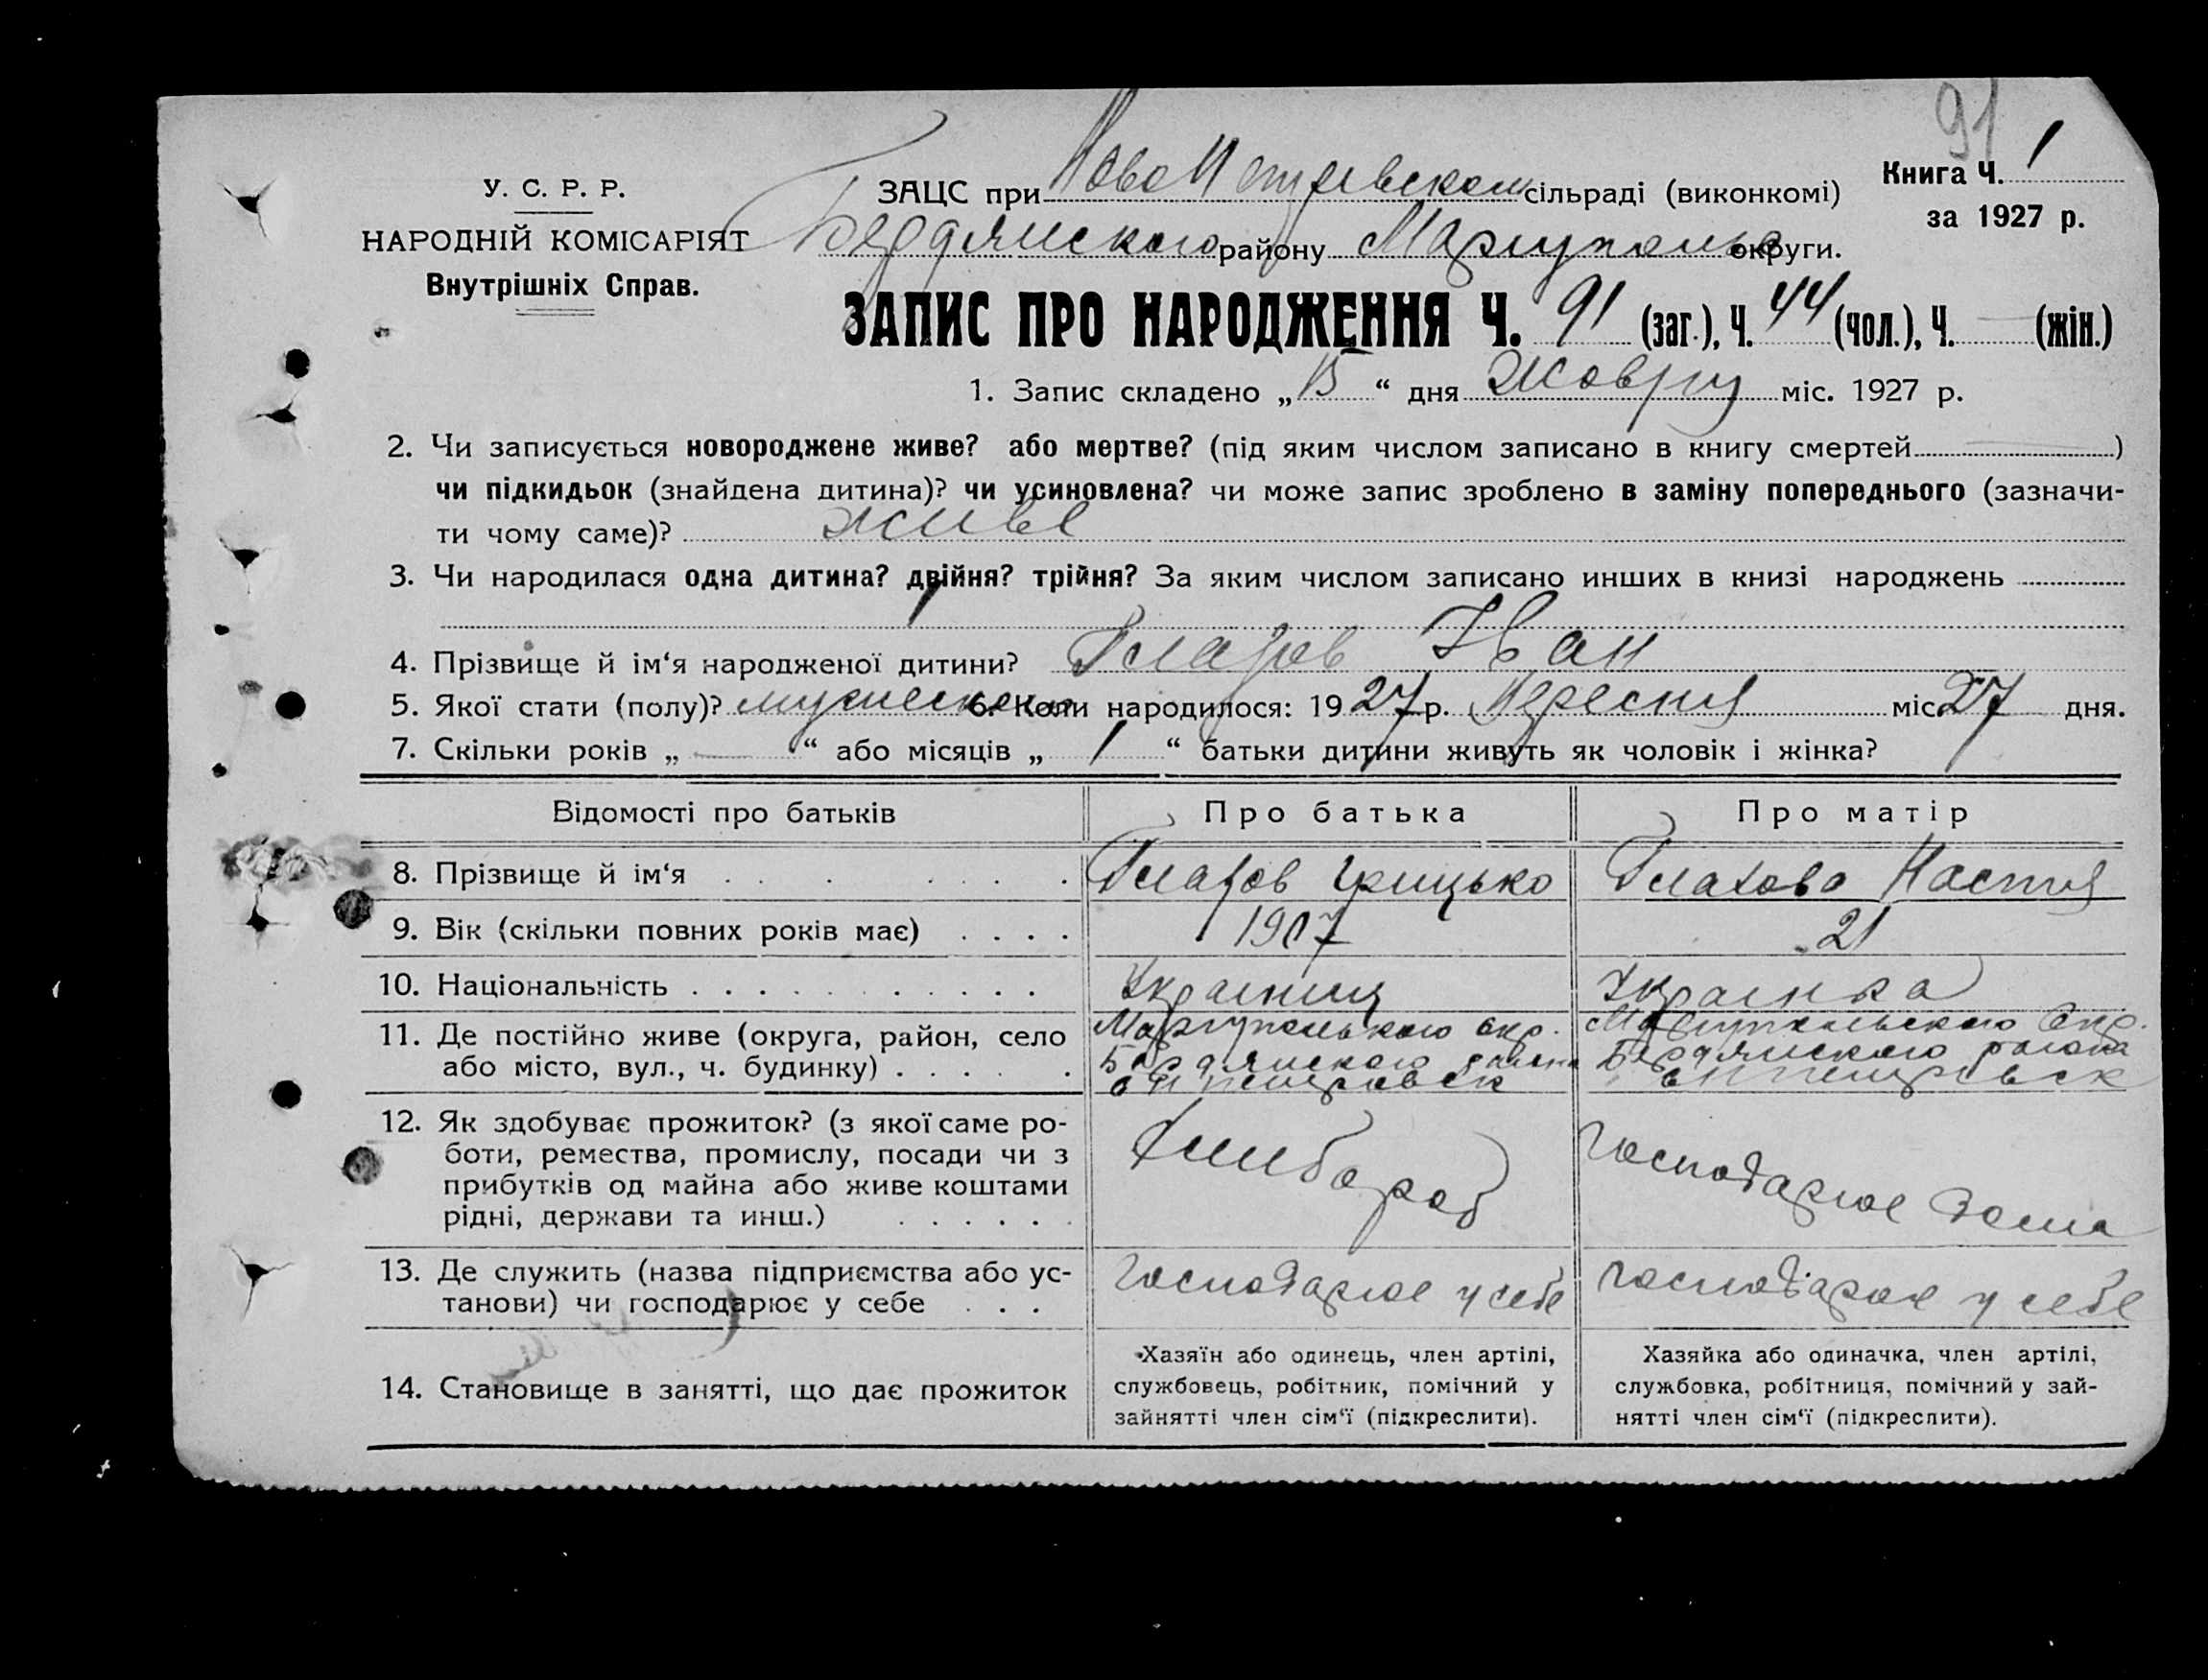 91
У. С. Р. Р.
НАРОДНІЙ КОМІСАРІЯТ
Внутрішніх Справ.
ЗАЦС при Ново сільраді (виконкомі)
Бердянського району Маріупольс округи.
Книга Ч. 1
за 1927 р.
ЗАПИС ПРО НАРОДЖЕННЯ Ч. 91 (заг.), Ч. 44 (чол.), Ч. — (жін.)
1. Запис складено „15“ дня Жовтня міс. 1927 р.
2. Чи записується новороджене живе? або мертве? (під яким числом записано в книгу смертей — )
чи підкидьок (знайдена дитина)? чи усиновлена? чи може запис зроблено в заміну попереднього (зазначи-
ти чому саме)? живе
3. Чи народилася одна дитина? двійня? трійня? За яким числом записано инших в книзі народжень
1
4. Прізвище й ім‘я народженої дитини? Глазов Іван
5. Якої стати (полу)? мужеского 6. Коли народилося: 1927 р. Вересня міс. 27 дня.
7. Скільки років „ — “ або місяців „ 1 “ батьки дитини живуть як чоловік і жінка?
Відомості про батьків Про батька Про матір
8. Прізвище й ім‘я Глазов Грицько Глазова Настя
9. Вік (скільки повних років має) 1907 21
10. Національність Украинец Украінка
11. Де постійно живе (округа, район, село Маріупольского окр. Маріупольского Окр.
або місто, вул., ч. будинку) Бердянского района Бердянского района
12. Як здобуває прожиток? (з якої саме ро-
боти, ремества, промислу, посади чи з
прибутків од майна або живе коштами
рідні, держави та инш.) Хлибороб Господарює дома
13. Де служить (назва підприємства або ус-
танови) чи господарює у себе Господарює у себе Господарює у себе
14. Становище в занятті, що дає прожиток
Хазяїн або одинець, член артілі,
службовець, робітник, помічний у
зайнятті член сім‘ї (підкреслити).
Хазяйка або одиначка, член артілі,
службовка, робітниця, помічний у зай-
нятті член сім‘ї (підкреслити).